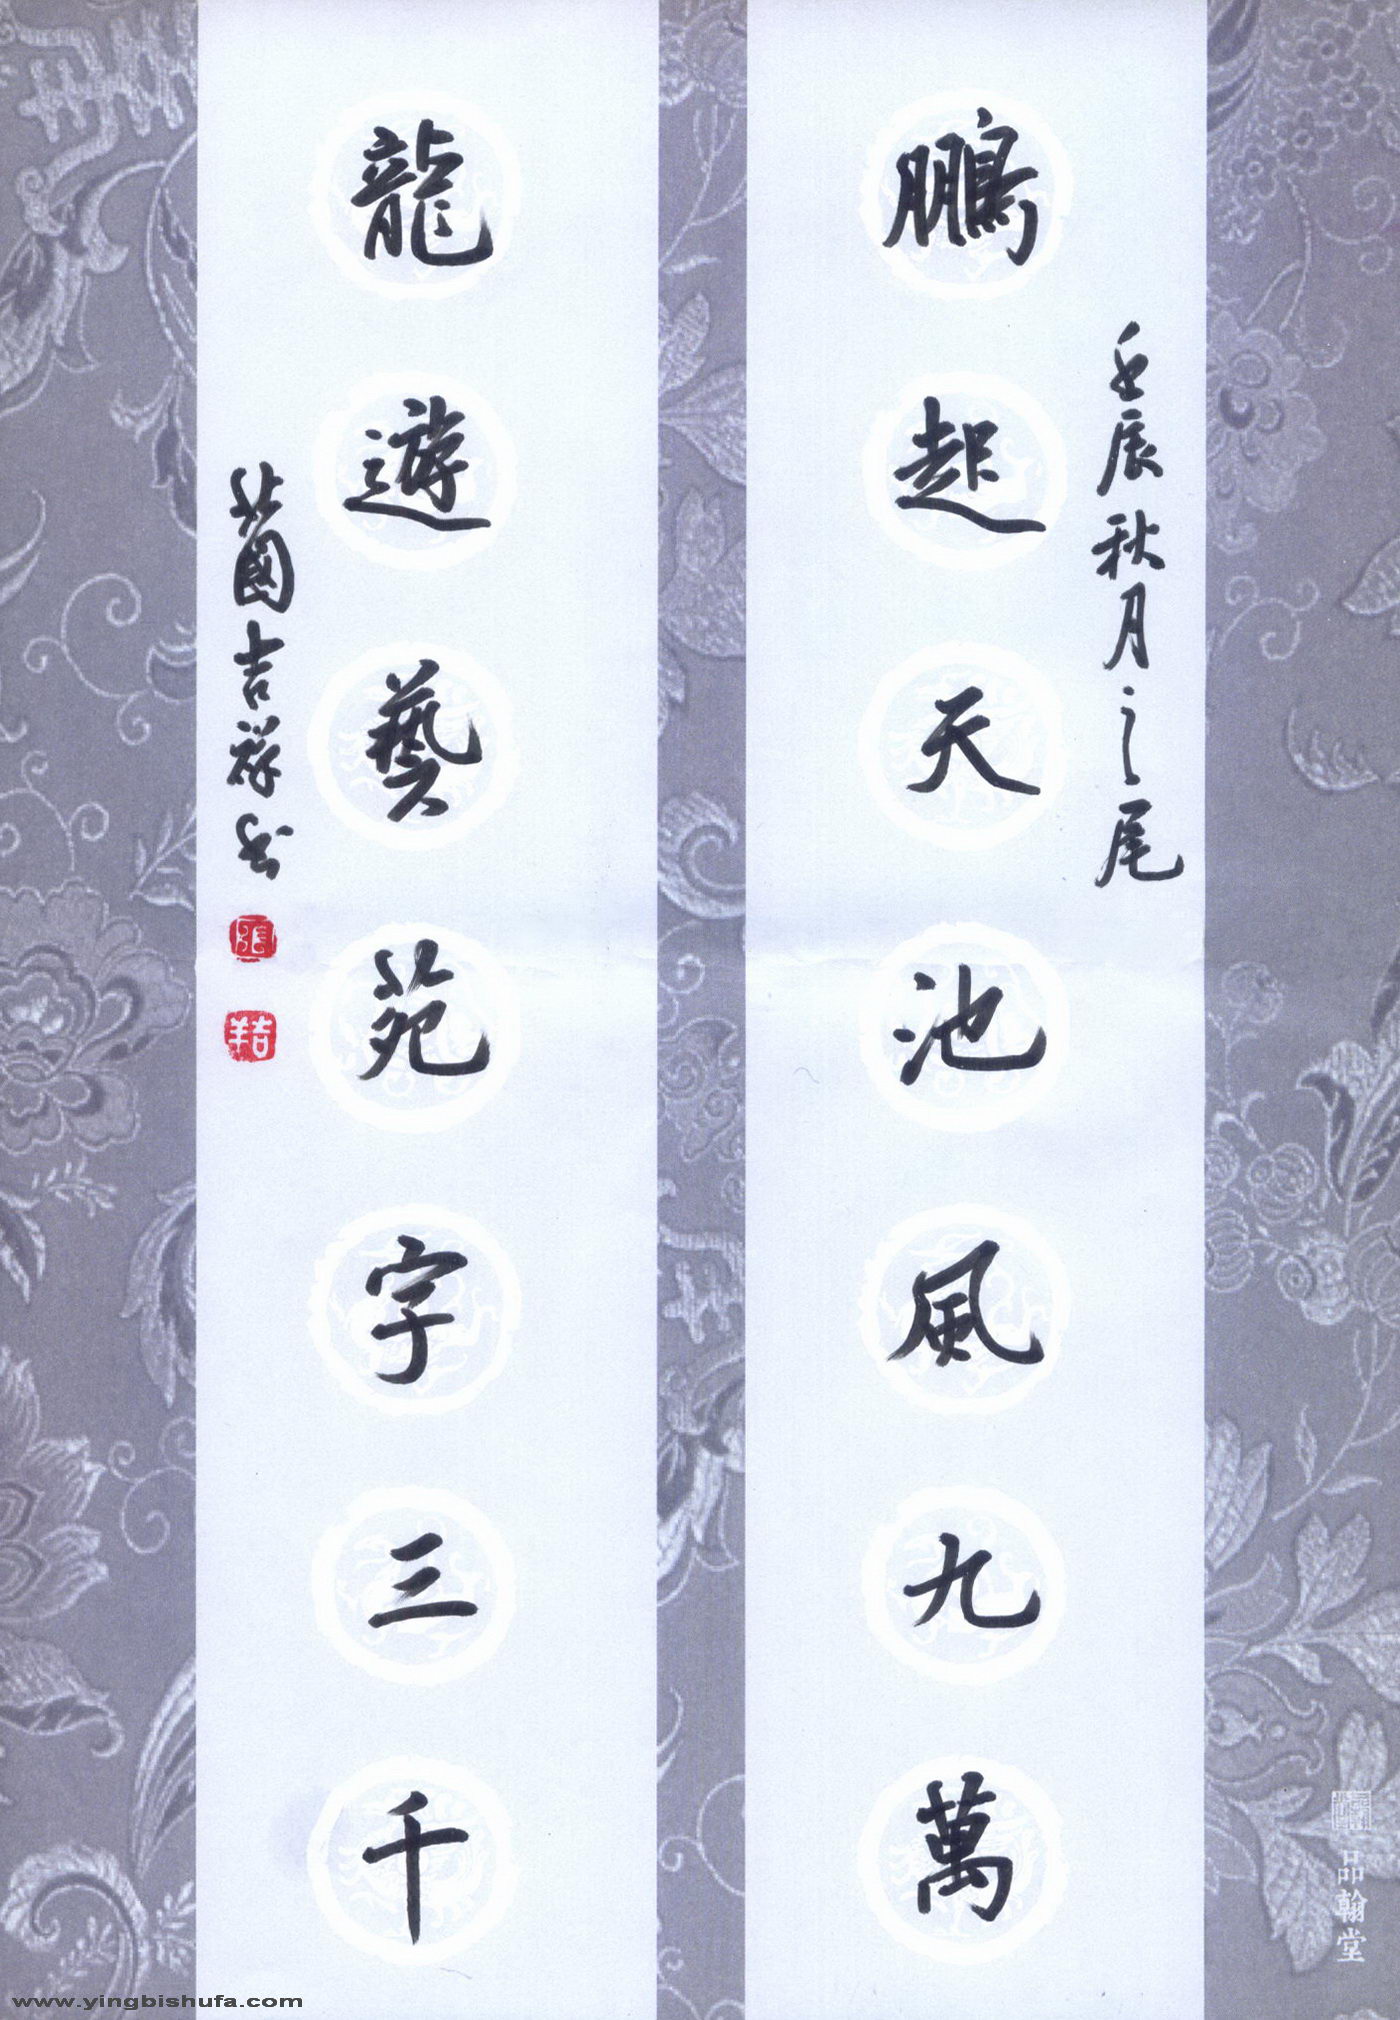 壬辰秋月之尾
鵬起天池風九萬
龍遊藝苑字三千
吉祥书
張
吉羊
一品翰堂
www.yingbishufa.com